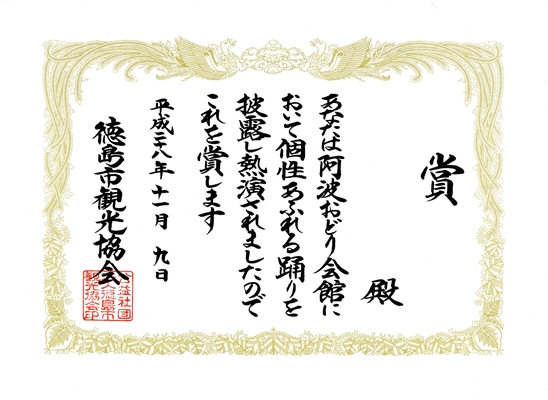 賞
殿
あなたは阿波おどり会館に
おいて個性あふれる踊りを
披露し熱演されましたので
これを賞します
平成二十八年十一月九日
徳島市観光協会
公益社団
法人徳島市
観光協会印